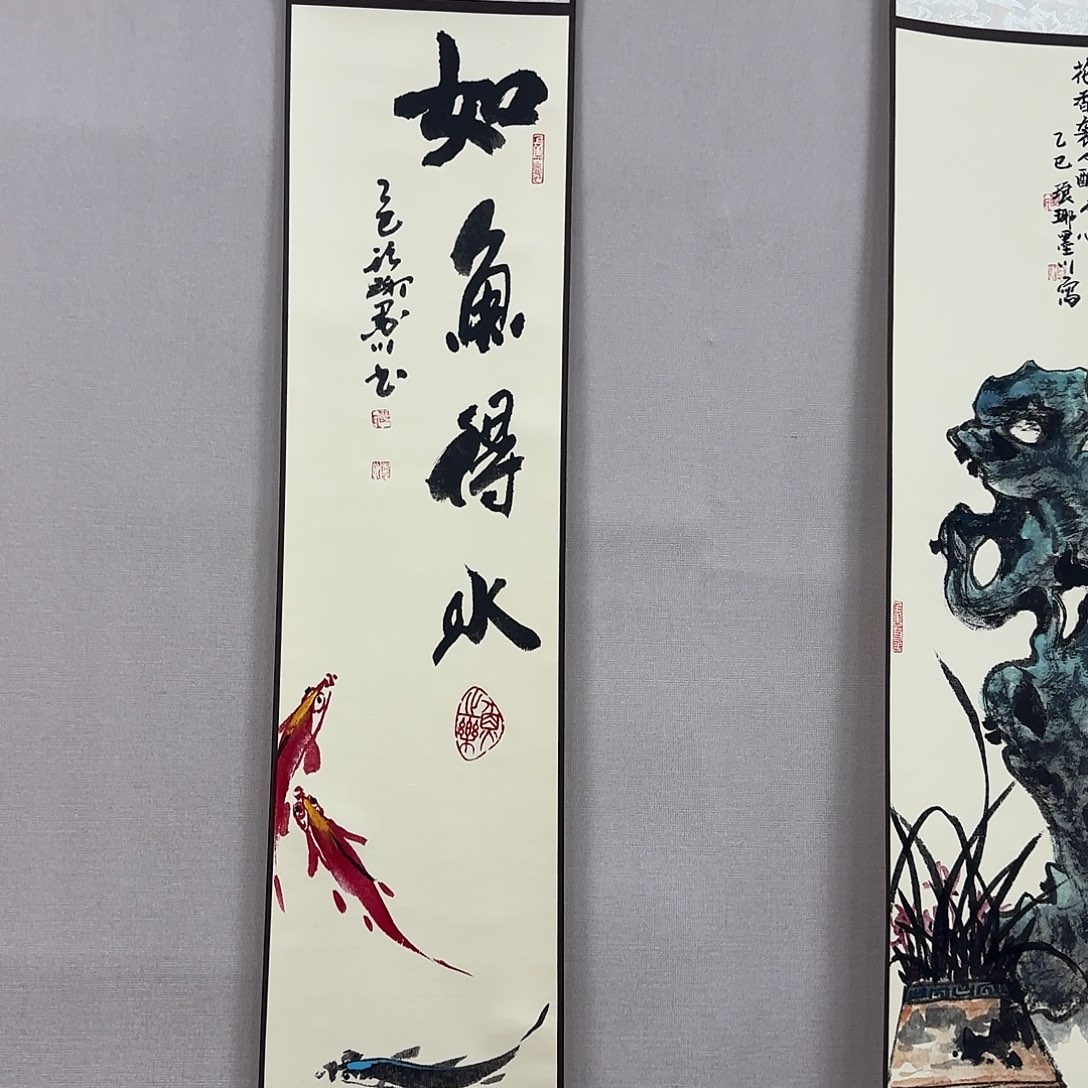 如魚得水
乙巳琅琊墨川书
真樂
花香袭人醉
乙巳琅琊墨川寫